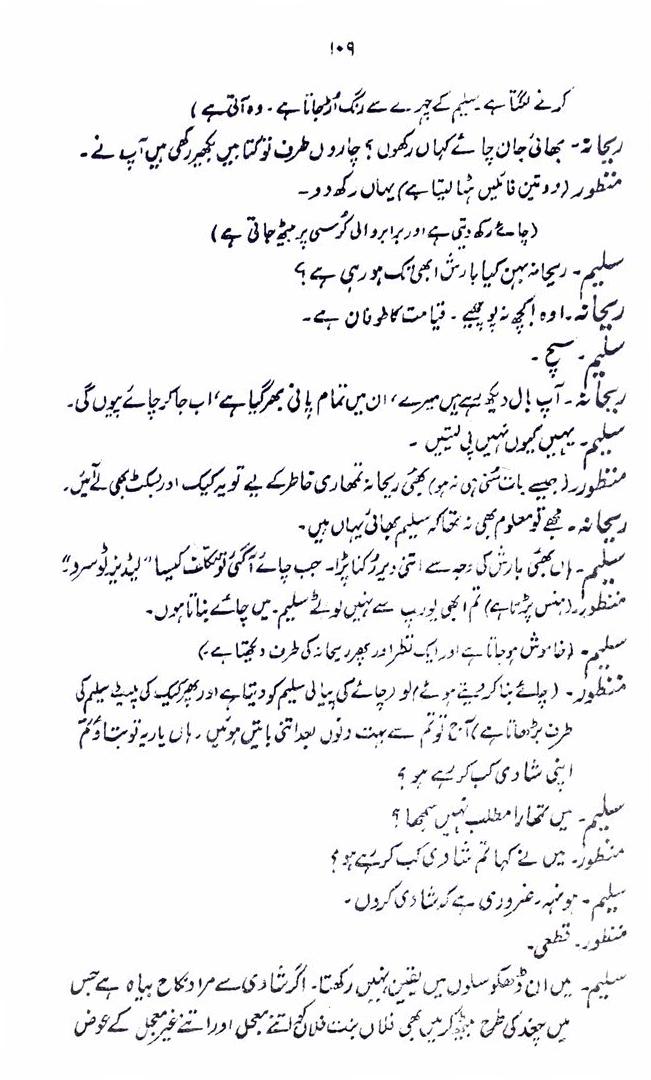 ۱۰۹
کرنے لگتا ہے۔ سلیم کے چہرے سے رنگ اُڑ جاتا ہے۔ وہ آتی ہے)
ریحانہ۔ بھائی جان چائے کہاں رکھوں؟ چاروں طرف تو کتابیں بکھیر رکھی ہیں آپ نے۔
منظور (دو تین فائلیں ہٹا لیتا ہے) یہاں رکھ دو۔
(چائے رکھ دیتی ہے اور برابر والی کُرسی پر بیٹھ جاتی ہے)
سلیم۔ ریحانہ بہن کیا بارش ابھی تک ہو رہی ہے؟
ریحانہ۔ اوہ! کچھ نہ پوچھیے۔ قیامت کا طوفان ہے۔
سلیم۔ سچ۔
ریحانہ۔ آپ بال دیکھ رہے ہیں میرے، ان میں تمام پانی بھر گیا ہے، اب جا کر چائے پیوں گی۔
سلیم۔ یہیں کیوں نہیں پی لیتیں۔
منظور۔ (جیسے بات سُنی ہی نہ ہو) بھئی ریحانہ تمھاری خاطر کے لیے تو یہ کیک اور بسکٹ بھی لے آئیں۔
ریحانہ۔ مجھے تو معلوم بھی نہ تھا کہ سلیم بھائی یہاں ہیں۔
سلیم۔ ہاں بھئی بارش کی وجہ سے اتنی دیر رُکنا پڑا۔ جب چائے آ گئی تو تکلف کیسا "لیڈیز ٹو سرو"
منظور۔ (ہنس پڑتا ہے) تم ابھی یورپ سے نہیں لوٹے سلیم۔ میں چائے بناتا ہوں۔
سلیم۔ (خاموش ہو جاتا ہے اور ایک نظر اور پھر ریحانہ کی طرف دیکھتا ہے۔)
منظور۔ (چائے بنا کر دیتے ہوئے) لو (چائے کی پیالی سلیم کو دیتا ہے اور پھر کیک کی پلیٹ سلیم کی
طرف بڑھاتا ہے) آج تو تم سے بہت دنوں بعد اتنی باتیں ہوئیں۔ ہاں یار یہ تو بتاؤ تم
اپنی شادی کب کر رہے ہو؟
سلیم۔ میں تمھارا مطلب نہیں سمجھا؟
منظور۔ میں نے کہا تم شادی کب کر رہے ہو؟
سلیم۔ ہونہہ۔ ضروری ہے کہ شادی کر دوں۔
منظور۔ قطعی۔
سلیم۔ میں ان ڈھکوسلوں میں یقین نہیں رکھتا۔ اگر شادی سے مراد نکاح بیاہ ہے جس
میں چغد کی طرح بیٹھ کر میں بھی فلاں بنت فلاں کو اتنے معجل اور اتنے غیر معجل کے عوض